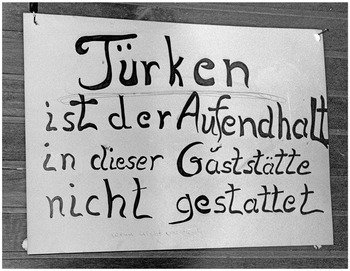 Türken
ist der Aufendhalt
in dieser Gaststätte
nicht gestattet